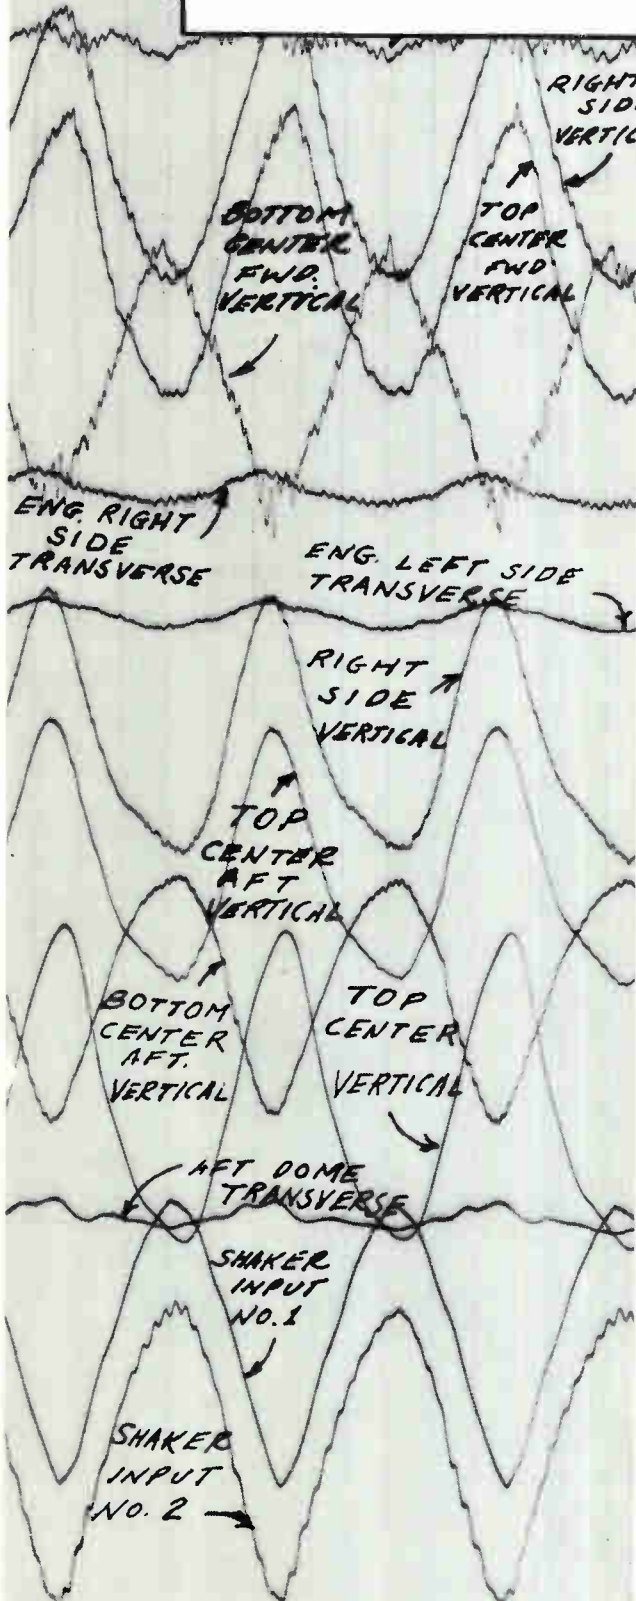 RIGHT
SIDE
BOTTOM
CENTER
FWD.
VERTICAL
TOP
CENTER
FWD
VERTICAL
ENG. RIGHT
SIDE
TRANSVERSE
ENG. LEFT SIDE
TRANSVERSE
RIGHT
SIDE
VERTICAL
TOP
CENTER
AFT
VERTICAL
BOTTOM
CENTER
AFT.
VERTICAL
TOP
CENTER
VERTICAL
AFT DOME
TRANSVERSE
SHAKER
INPUT
NO. 1
SHAKER
INPUT
NO. 2